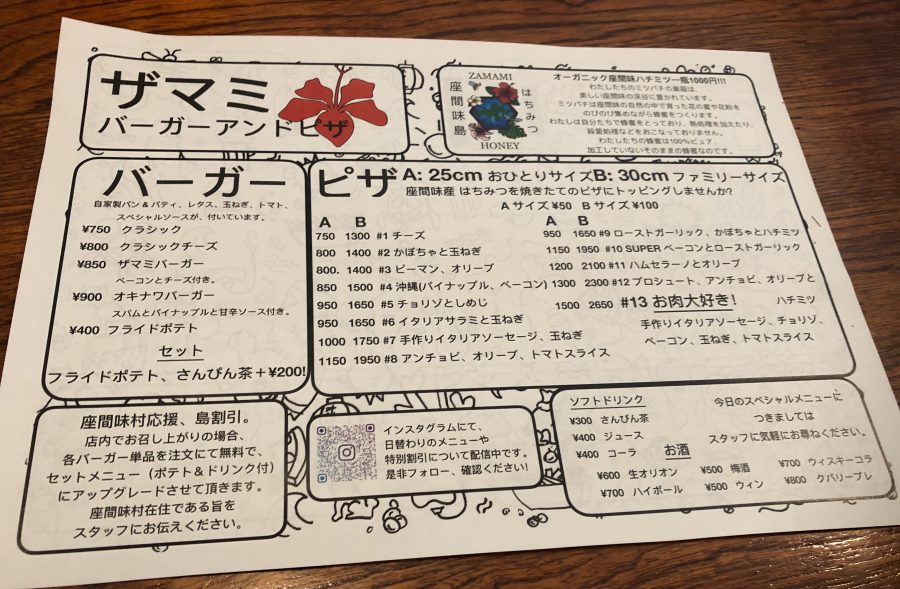 ザマミ
バーガーアンドピザ
ZAMAMI
座間味島
はちみつ
HONEY
オーガニック座間味ハチミツ一瓶1000円!!!
わたしたちのミツバチの巣箱は、
美しい座間味の深谷に置かれています。
ミツバチは座間味の自然の中で育った花の蜜や花粉を
のびのび集めながら蜂蜜をつくります。
わたしは自分たちで蜂蜜をとっており、熱処理を加えたり、
殺菌処理などをおこなっておりません。
わたしたちの蜂蜜は100%ピュア、
加工していないそのままの蜂蜜なのです。
バーガー
自家製パン&パティ、レタス、玉ねぎ、トマト、
スペシャルソースが、付いています。
¥750 クラシック
¥800 クラシックチーズ
¥850 ザマミバーガー
ベーコンとチーズ付き。
¥900 オキナワバーガー
スパムとパイナップルと甘辛ソース付き。
¥400 フライドポテト
セット
フライドポテト、さんぴん茶+¥200!
ピザ A: 25cm おひとりサイズ B: 30cm ファミリーサイズ
座間味産 はちみつを焼きたてのピザにトッピングしませんか?
A サイズ ¥50 B サイズ ¥100
A B
750 1300 #1 チーズ
800 1400 #2 かぼちゃと玉ねぎ
800. 1400 #3 ピーマン、オリーブ
850 1500 #4 沖縄(パイナップル、ベーコン)
950 1650 #5 チョリゾとしめじ
950 1650 #6 イタリアサラミと玉ねぎ
1000 1750 #7 手作りイタリアソーセージ、玉ねぎ
1150 1950 #8 アンチョビ、オリーブ、トマトスライス
A B
950 1650 #9 ローストガーリック、かぼちゃとハチミツ
1150 1950 #10 SUPER ベーコンとローストガーリック
1200 2100 #11 ハムセラーノとオリーブ
1300 2300 #12 プロシュート、アンチョビ、オリーブと
ハチミツ
1500 2650 #13 お肉大好き!
手作りイタリアソーセージ、チョリゾ、
ベーコン、玉ねぎ、トマトスライス
座間味村応援、島割引。
店内でお召し上がりの場合、
各バーガー単品を注文にて無料で、
セットメニュー(ポテト&ドリンク付)
にアップグレードさせて頂きます。
座間味村在住である旨を
スタッフにお伝えください。
インスタグラムにて、
日替わりのメニューや
特別割引について配信中です。
是非フォロー、確認ください!
ソフトドリンク
¥300 さんぴん茶
¥400 ジュース
¥400 コーラ
今日のスペシャルメニューに
つきましては
スタッフに気軽にお尋ねください。
お酒
¥600 生オリオン
¥500 梅酒
¥700 ウィスキーコラ
¥700 ハイボール
¥500 ワイン
¥800 クバリーブレ